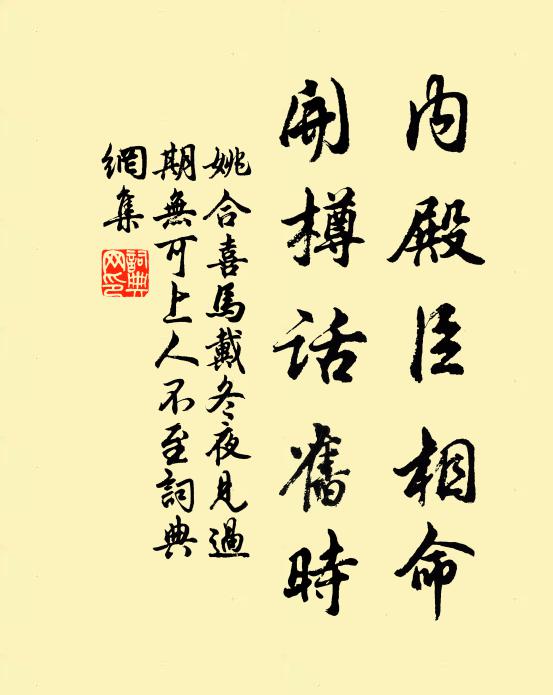 內殿臣相命
開樽話舊時
姚合喜馬戴冬夜見過
期無可上人不至詞典
網集
詞典
网印